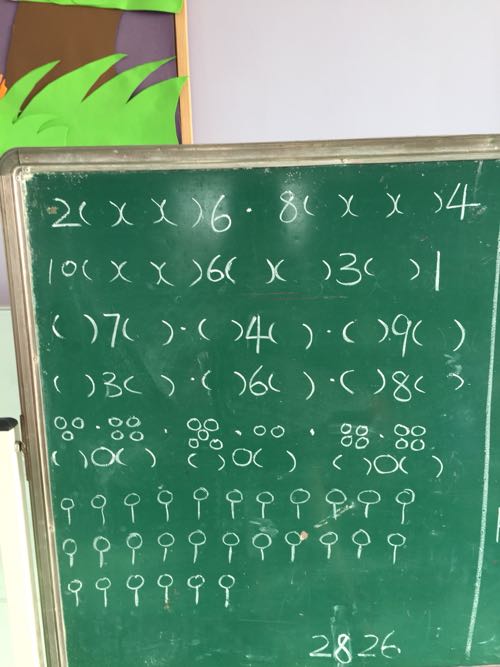 2( )( )( )6 · 8( )( )( )4
10( )( )( )6( )( )3( )1
( )7( ) · ( )4( ) · ( )9( )
( )3( ) · ( )6( ) · ( )8( )
( )○( ) ( )○( ) ( )○( )
2826